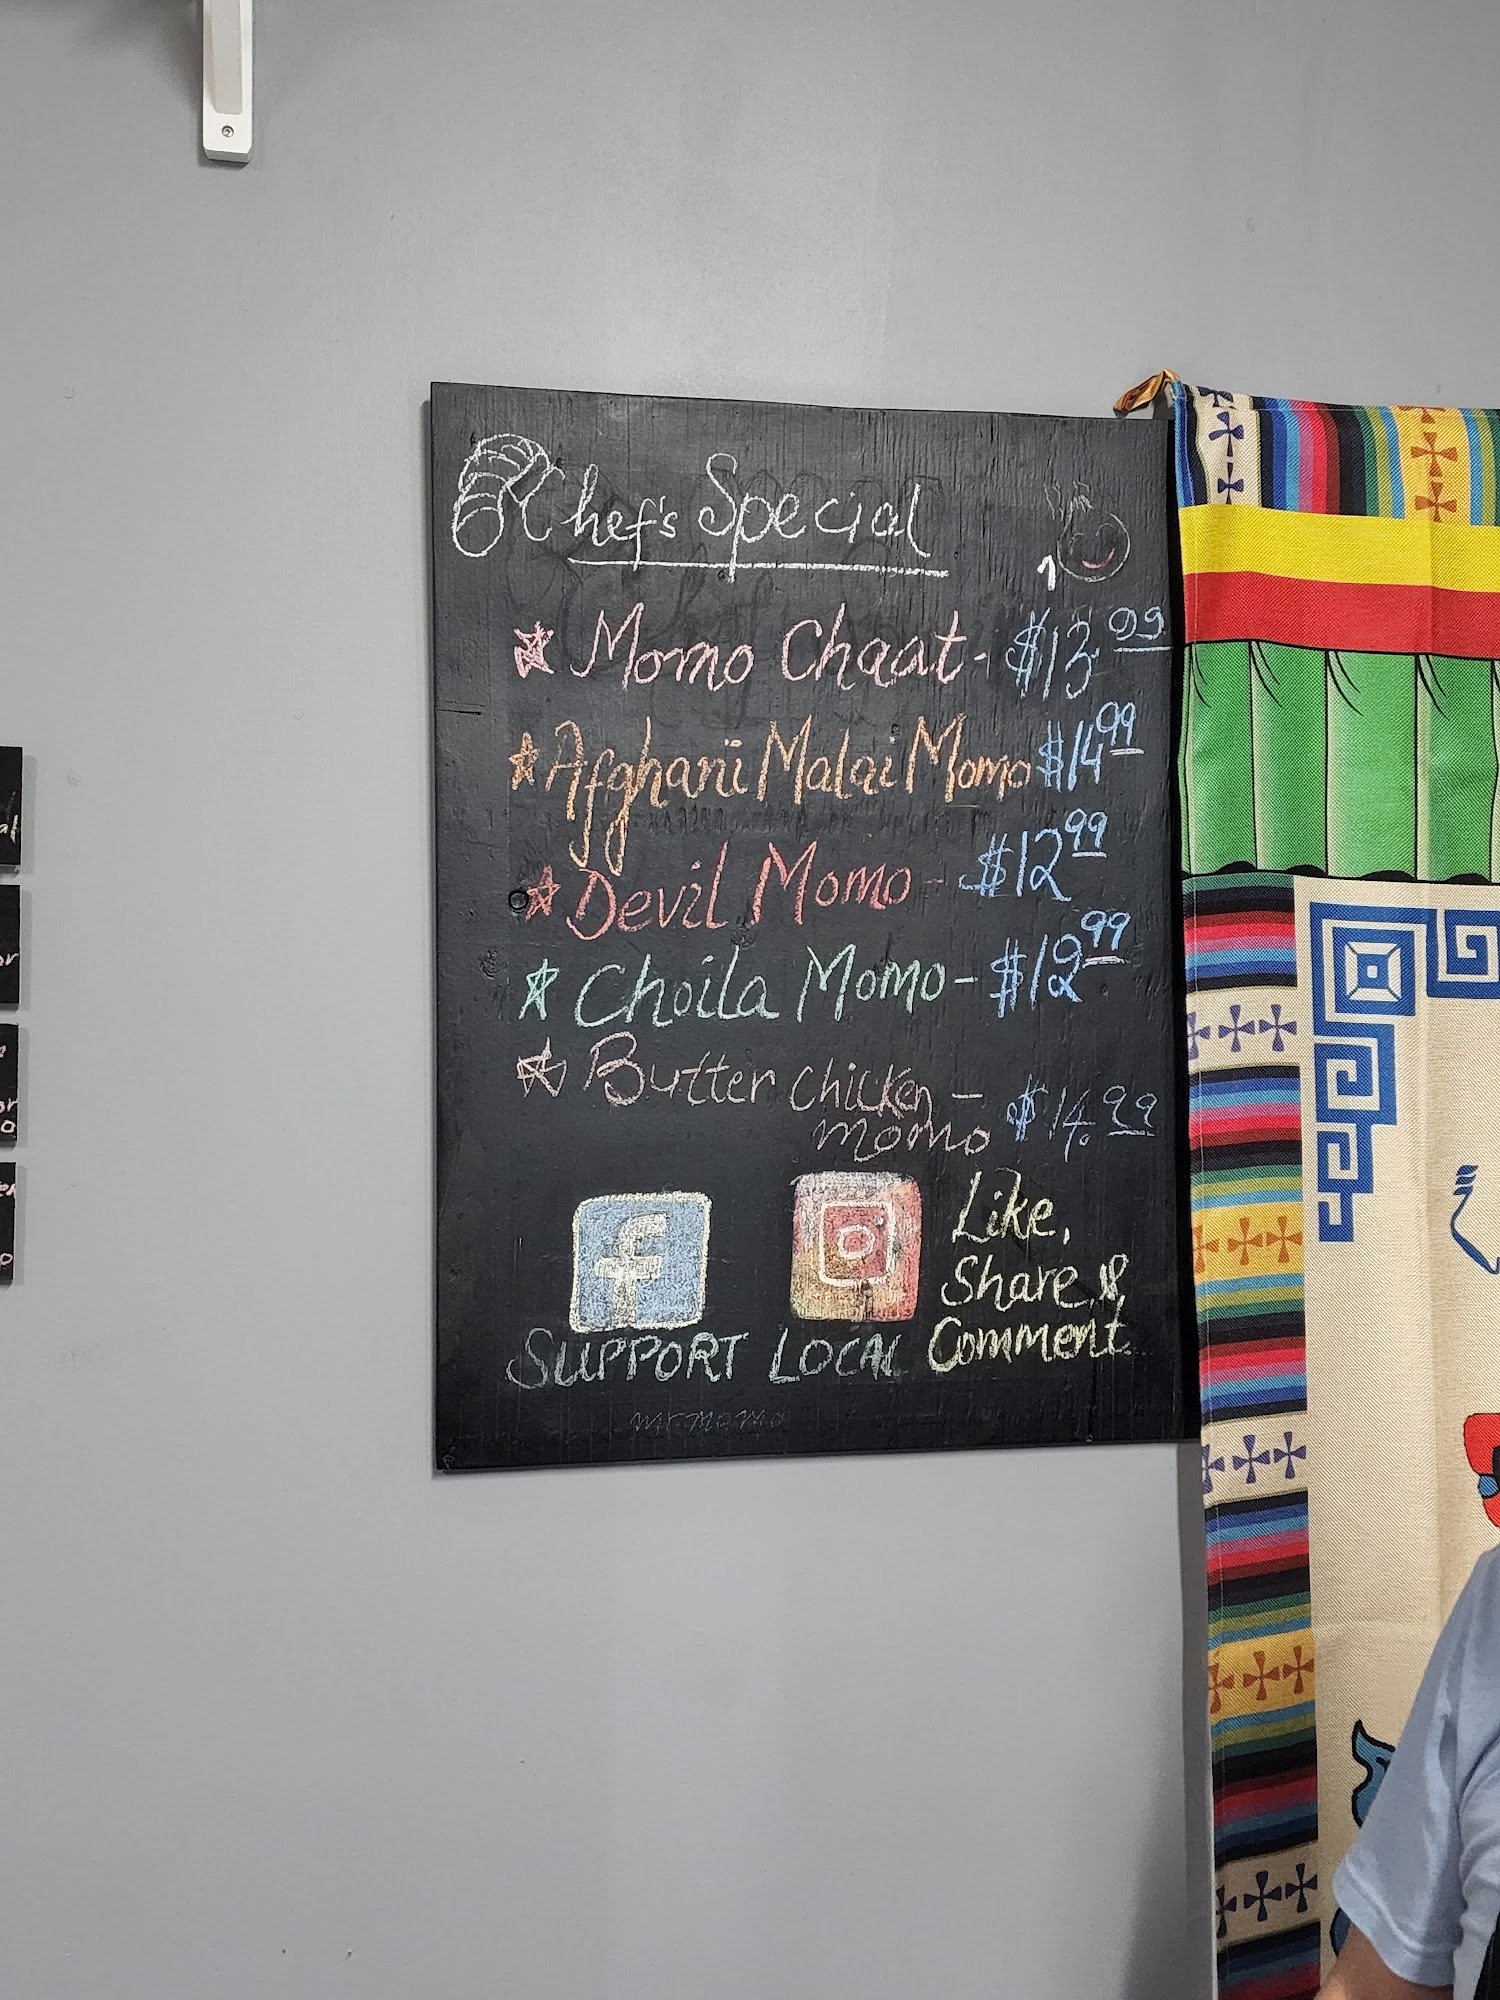 Chef's Special
Momo Chaat - $13.99
Afghani Malai Momo $14.99
Devil Momo - $12.99
Choila Momo - $12.99
Butter chicken - $14.99
momo
f
Like,
Share &
Comment
SUPPORT LOCAL
mr momo